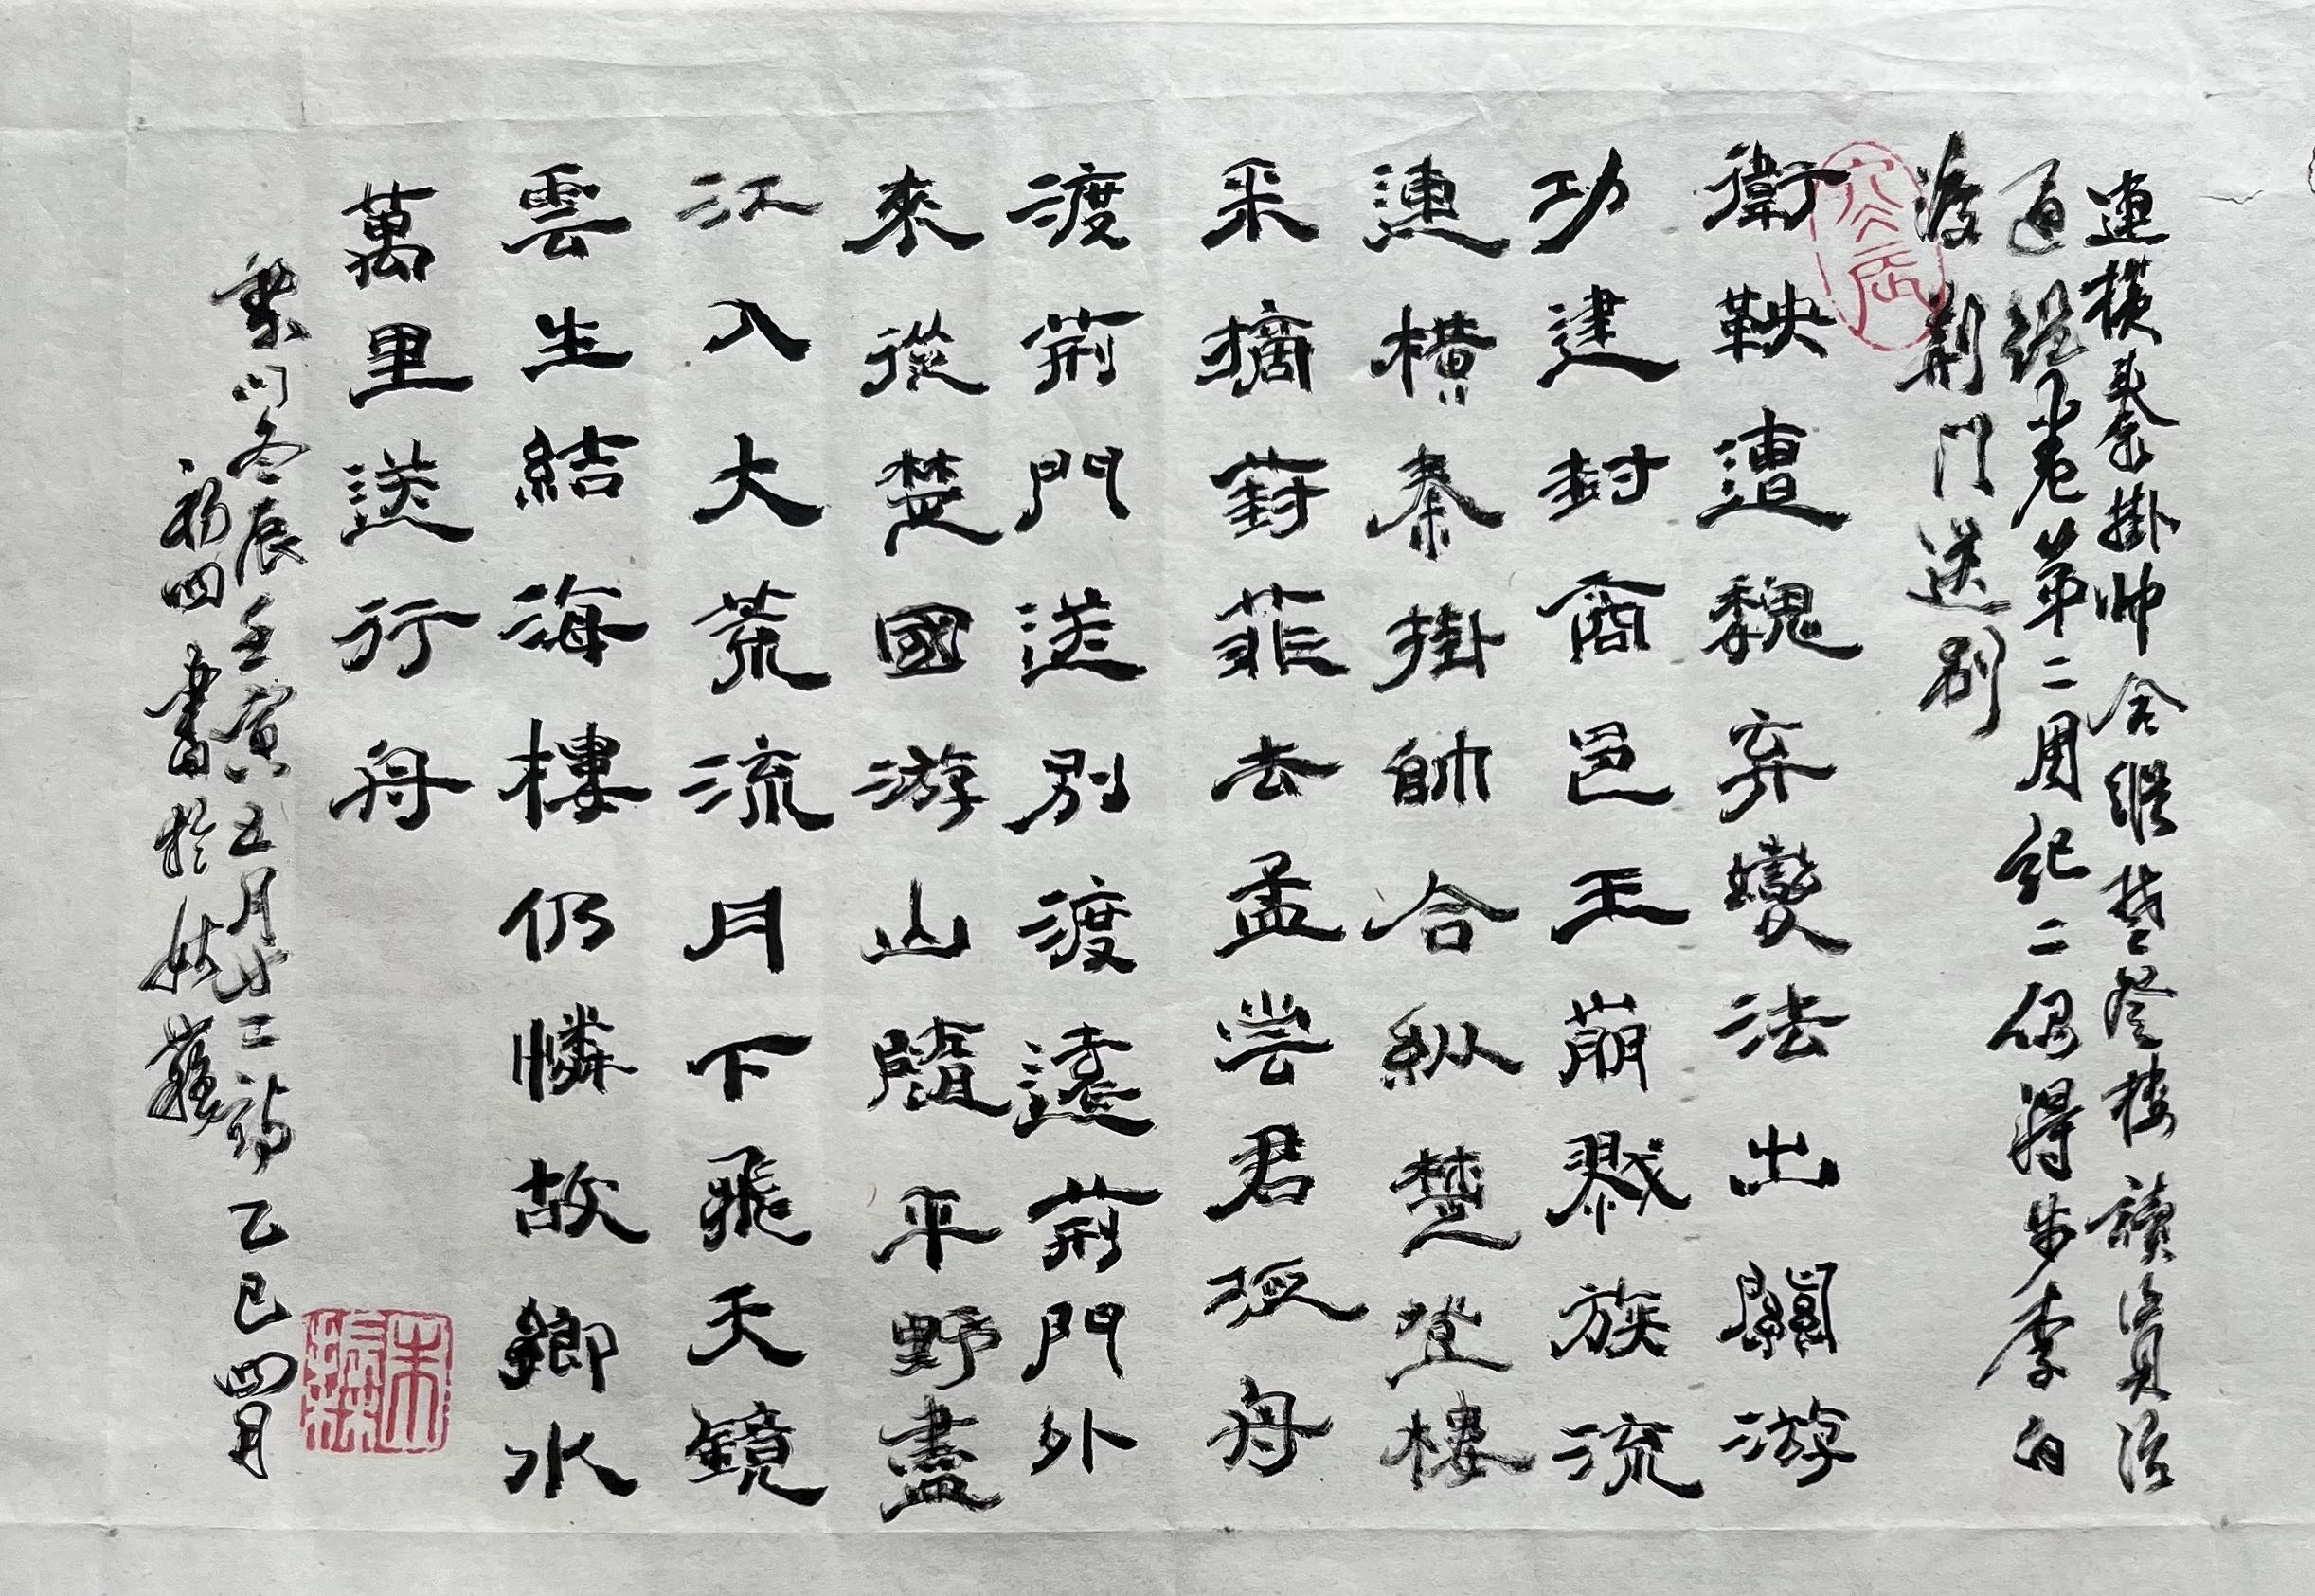 連橫秦掛帥合縱楚登樓讀資治
通鑑卷第二周紀二偶得步李白
渡荊門送別
衛鞅遭魏弃變法出關游
功建封商邑王崩戮族流
連橫秦掛帥合縱楚登樓
采摘葑菲去孟尝君泛舟
渡荊門送別渡遠荊門外
來從楚國游山隨平野盡
江入大荒流月下飛天鏡
雲生結海樓仍憐故鄉水
萬里送行舟
冬辰壬寅五月 乙巳四月
初四書於姑蘇